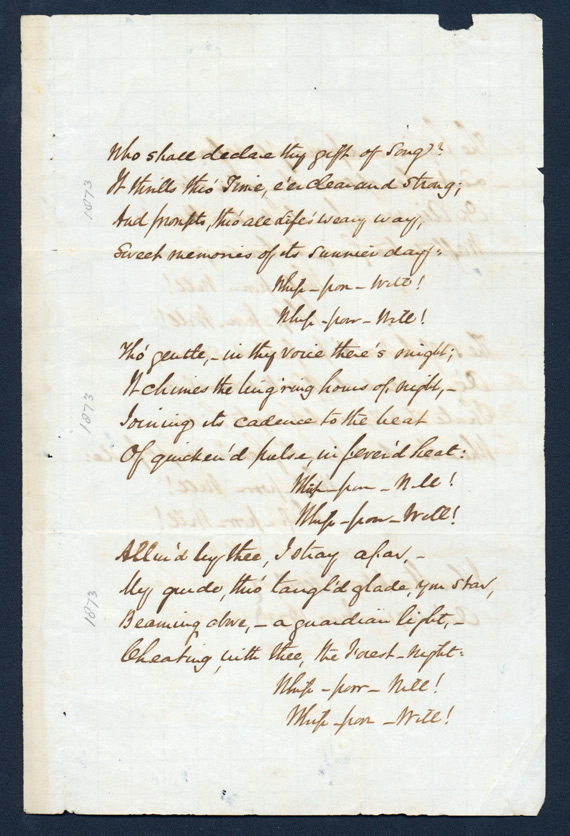 Who shall declare thy gift of Song?
It thrills thro' Time, e'er clear and strong;
And prompts, thro' all life's weary way,
Sweet memories of its summer day:
Whip-poor-Will!
Whip-poor-Will!
Tho' gentle, - in thy voice there's might;
It chimes the ling'ring hours of night, -
Joining its cadence to the beat
Of quicken'd pulse, in fever'd heat:
Whip-poor-Will!
Whip-poor-Will!
Allur'd by thee, I stray afar, -
My guide, thro' tangl'd glade, yon star,
Beaming above, - a guardian light, -
Cheating, with thee, the Forest-night:
Whip-poor-Will!
Whip-poor-Will!
1873
1873
1873